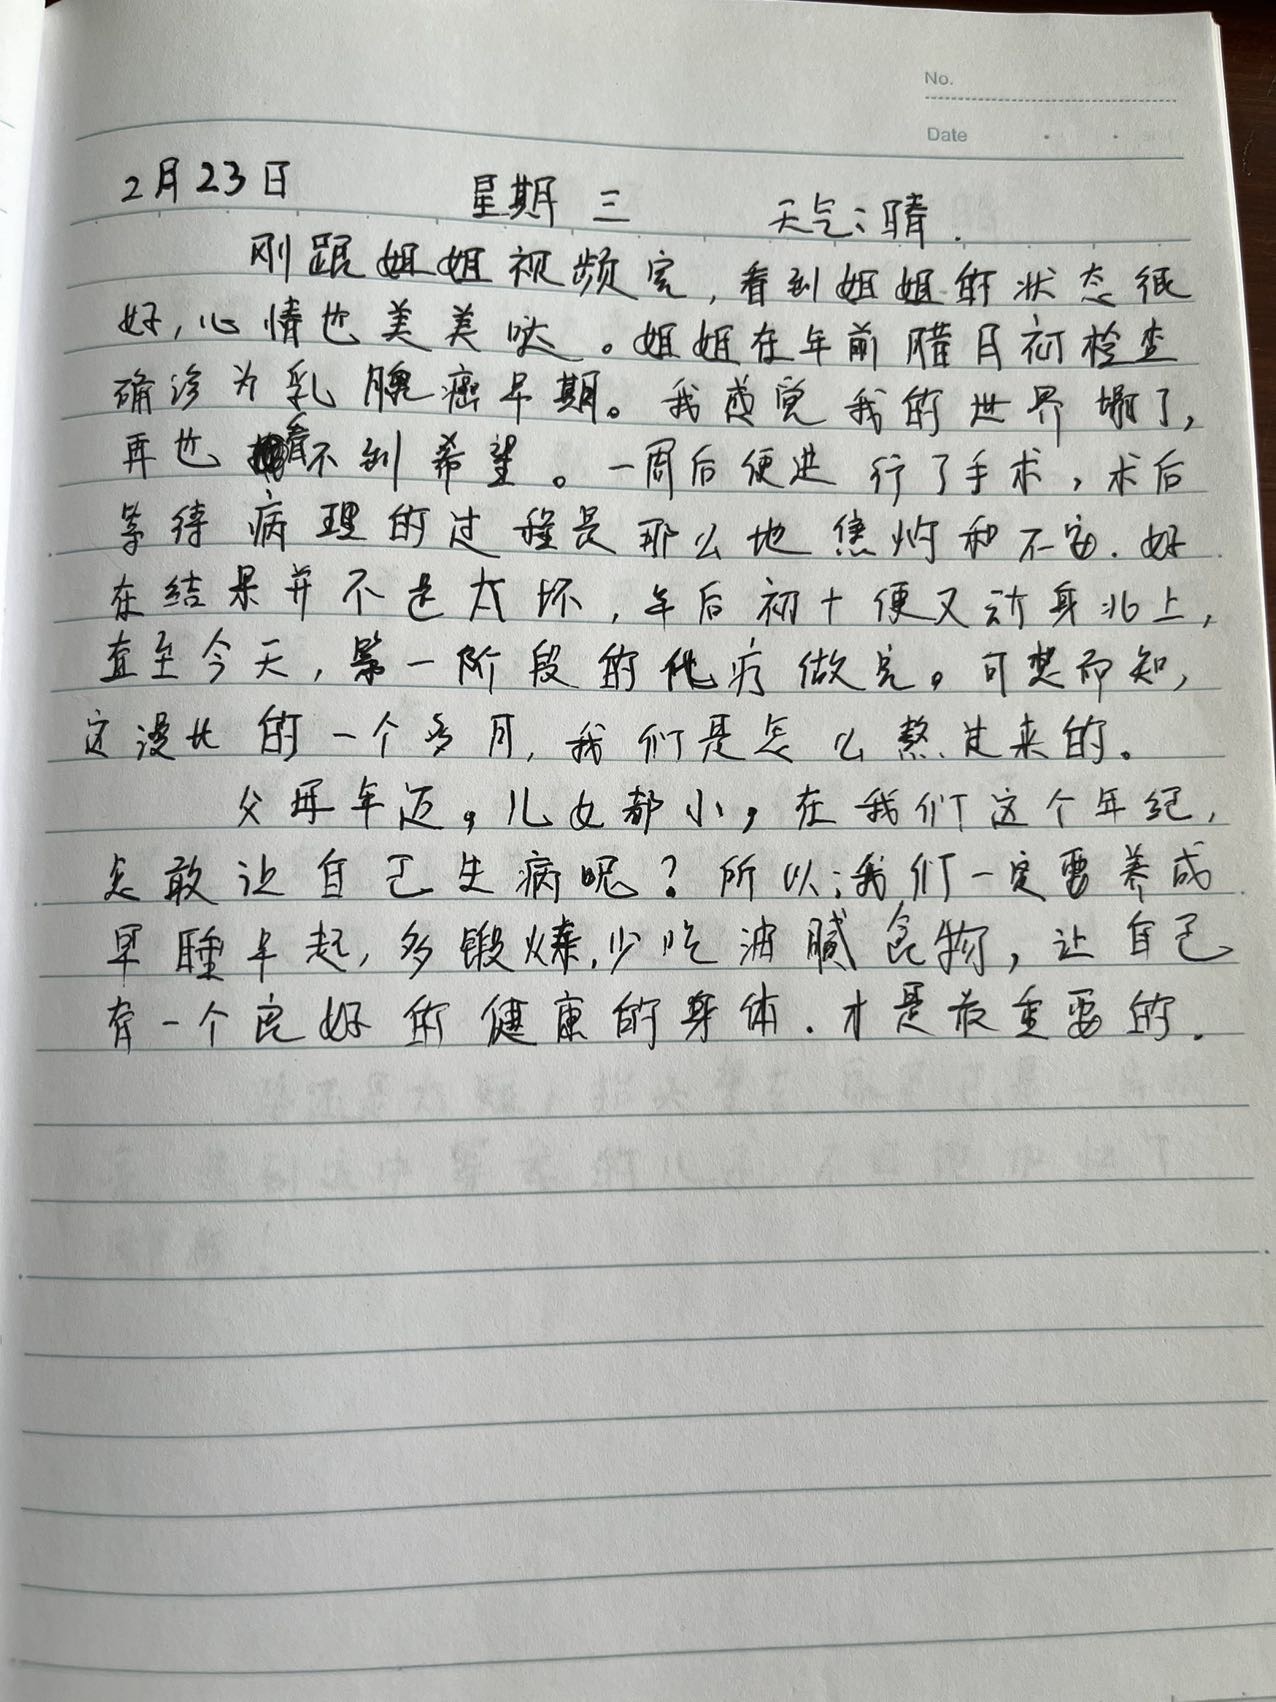 No.
Date
2月23日 星期三 天气:晴.
刚跟姐姐视频完,看到姐姐的状态很
好,心情也美美哒。姐姐在年前腊月初检查
确诊为乳腺癌早期。我感觉我的世界塌了,
再也看不到希望。一周后便进行了手术,术后
等待病理的过程是那么地焦灼和不安.好
在结果并不是太坏,年后初十便又动身北上,
直至今天,第一阶段的化疗做完。可想而知,
这漫长的一个多月,我们是怎么熬过来的。
父母年迈。儿女都小,在我们这个年纪,
怎敢让自己生病呢?所以:我们一定要养成
早睡早起,多锻炼,少吃油腻食物,让自己
有一个良好的健康的身体.才是最重要的.